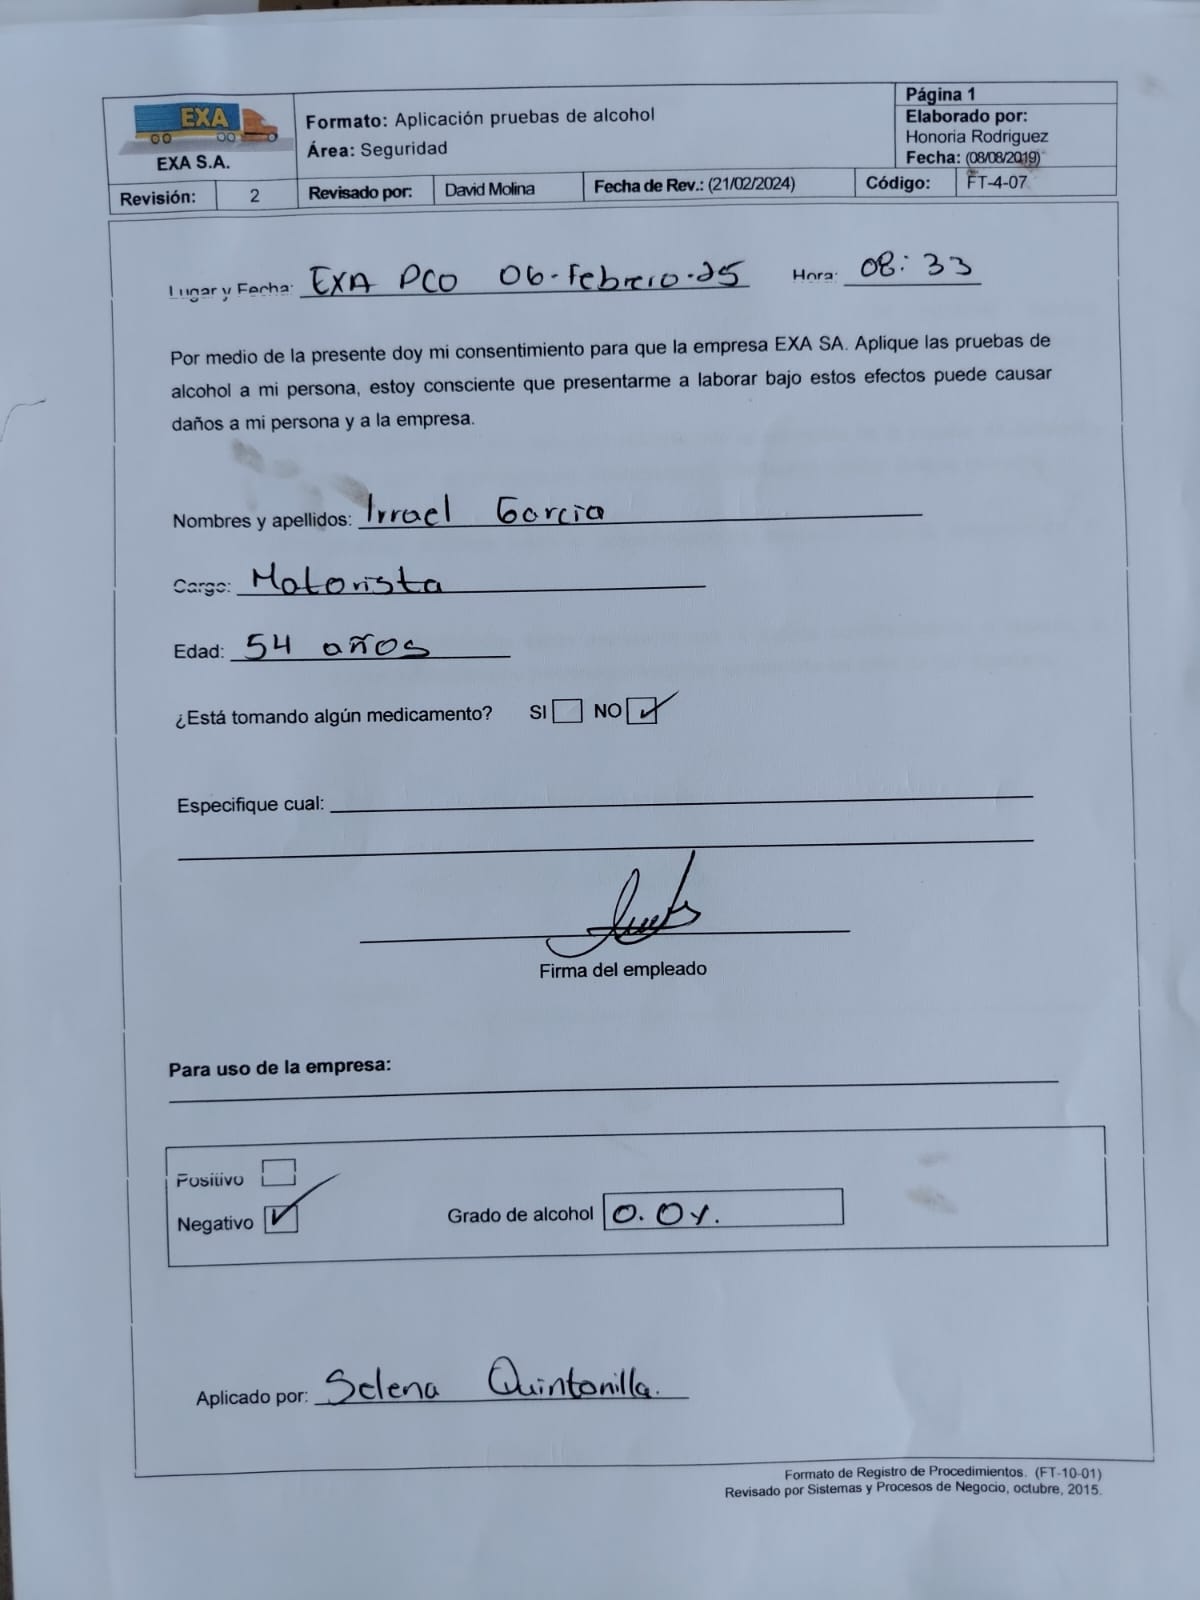 EXA
EXA S.A.
Formato: Aplicación pruebas de alcohol
Área: Seguridad
Página 1
Elaborado por:
Honoria Rodriguez
Fecha: (08/08/2019)
Revisión: 2 Revisado por: David Molina Fecha de Rev.: (21/02/2024) Código: FT-4-07
Lugar y Fecha: EXA PCO 06-Febrero-25 Hora: 08:33
Por medio de la presente doy mi consentimiento para que la empresa EXA SA. Aplique las pruebas de
alcohol a mi persona, estoy consciente que presentarme a laborar bajo estos efectos puede causar
daños a mi persona y a la empresa.
Nombres y apellidos: Irrael Garcia
Cargo: Motorista
Edad: 54 años
¿Está tomando algún medicamento? SI NO
Especifique cual:
Firma del empleado
Para uso de la empresa:
Positivo
Negativo Grado de alcohol 0.0%.
Aplicado por: Selena Quintanilla.
Formato de Registro de Procedimientos. (FT-10-01)
Revisado por Sistemas y Procesos de Negocio, octubre, 2015.